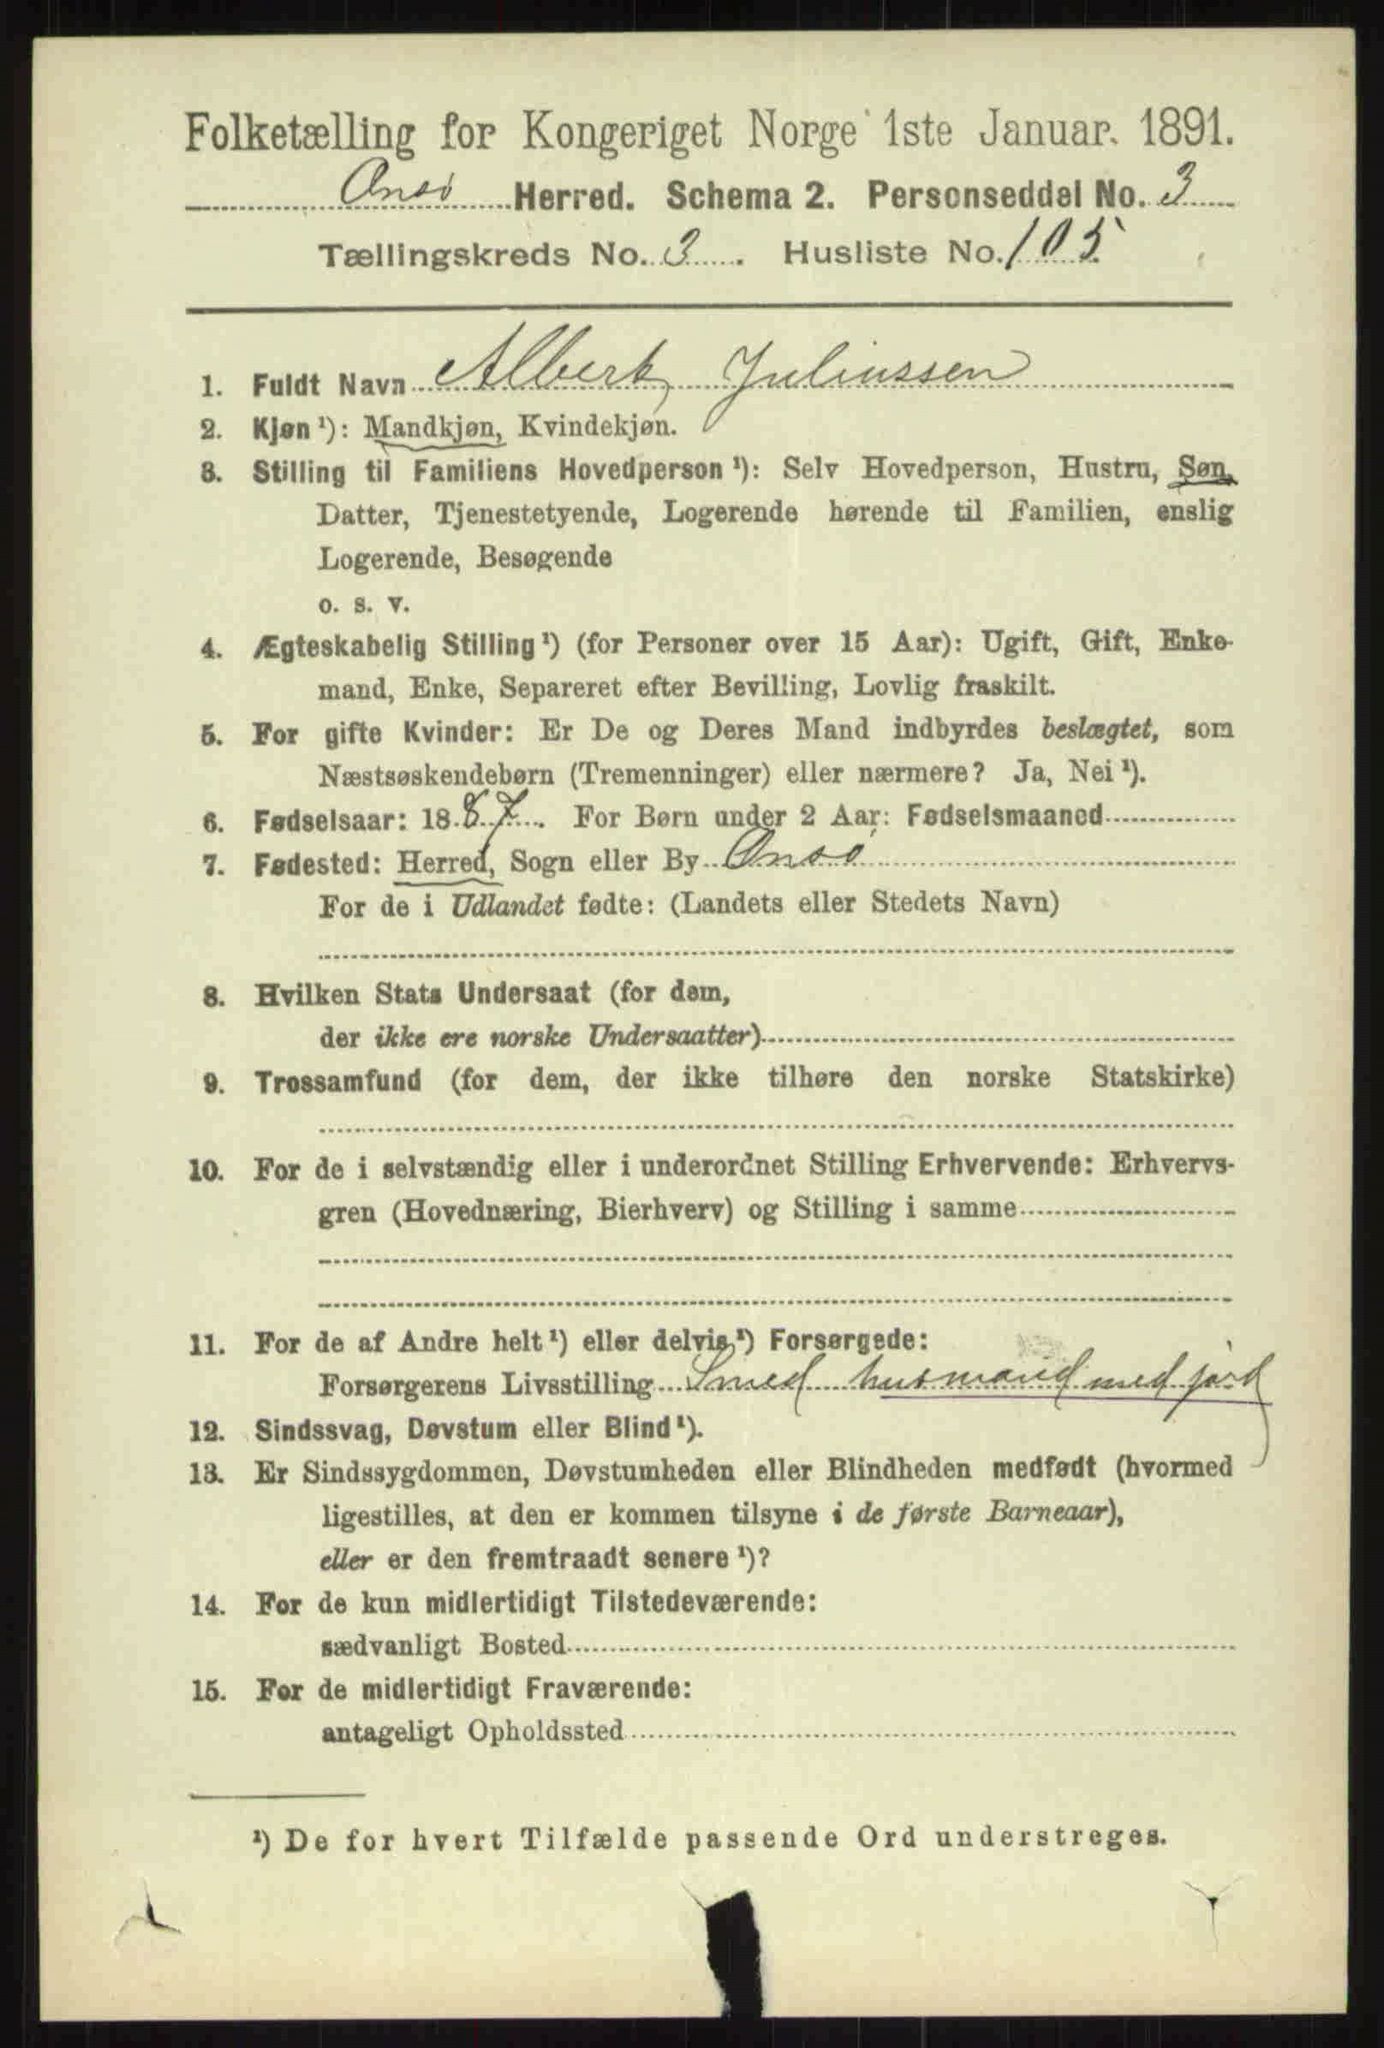 Folketælling for Kongeriget Norge 1ste Januar. 1891.
Onsø Herred. Schema 2. Personseddel No. 3
Tællingskreds No. 3. Husliste No. 105
1. Fuldt Navn Albert Juliussen
2. Kjøn ¹): Mandkjøn, Kvindekjøn.
3. Stilling til Familiens Hovedperson ¹): Selv Hovedperson, Hustru, Søn,
Datter, Tjenestetyende, Logerende hørende til Familien, enslig
Logerende, Besøgende
o. s. v.
4. Ægteskabelig Stilling ¹) (for Personer over 15 Aar): Ugift, Gift, Enke-
mand, Enke, Separeret efter Bevilling, Lovlig fraskilt.
5. For gifte Kvinder: Er De og Deres Mand indbyrdes beslægtet, som
Næstsøskendebørn (Tremenninger) eller nærmere? Ja, Nei ¹).
6. Fødselsaar: 1887. For Børn under 2 Aar: Fødselsmaaned
7. Fødested: Herred, Sogn eller By Onsø
For de i Udlandet fødte: (Landets eller Stedets Navn)
8. Hvilken Stats Undersaat (for dem,
der ikke ere norske Undersaatter)
9. Trossamfund (for dem, der ikke tilhøre den norske Statskirke)
10. For de i selvstændig eller i underordnet Stilling Erhvervende: Erhvervs-
gren (Hovednæring, Bierhverv) og Stilling i samme
11. For de af Andre helt ¹) eller delvis ¹) Forsørgede:
Forsørgerens Livsstilling Smed husmand med jord
12. Sindssvag, Døvstum eller Blind ¹).
13. Er Sindssygdommen, Døvstumheden eller Blindheden medfødt (hvormed
ligestilles, at den er kommen tilsyne i de første Barneaar),
eller er den fremtraadt senere ¹)?
14. For de kun midlertidigt Tilstedeværende:
sædvanligt Bosted
15. For de midlertidigt Fraværende:
antageligt Opholdssted
¹) De for hvert Tilfælde passende Ord understreges.